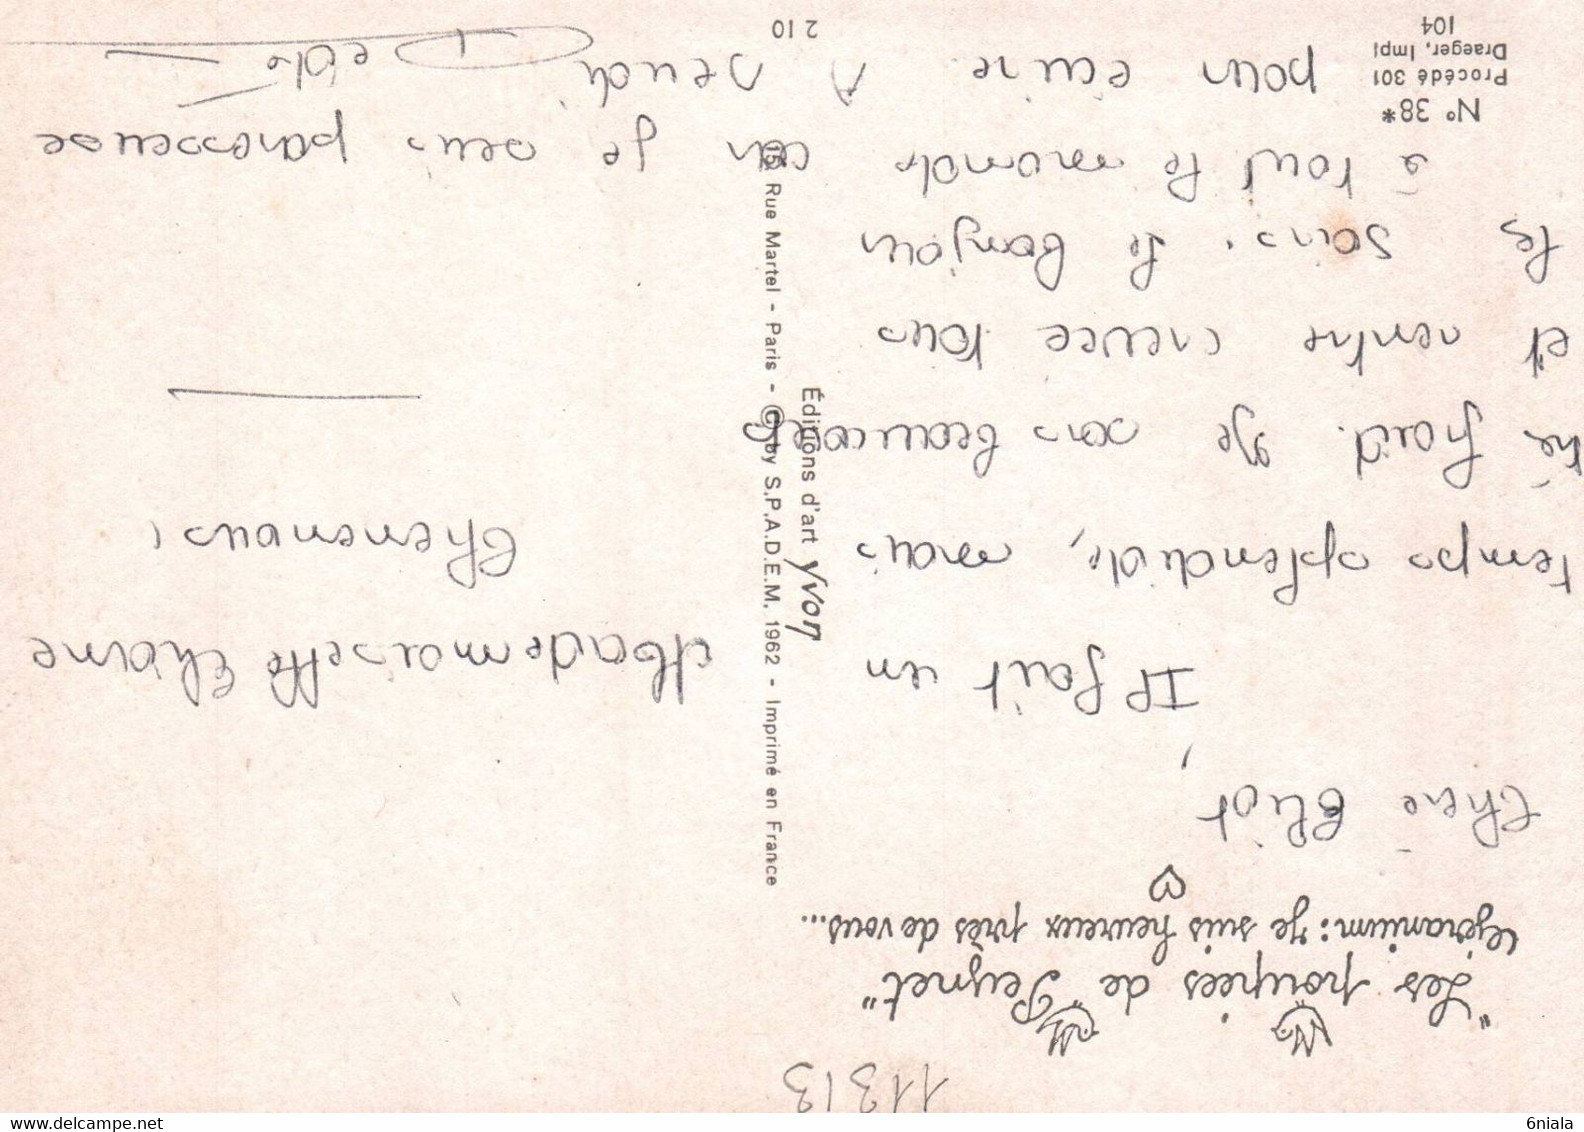 11313
"Les poupées de Peynet"
Le géranium: Je suis heureux près de vous...
Chère Eliot,
Il fait un
temps splendide, mais
très froid. Je sors beaucoup
et rentre crevée tous
les soirs. Le bonjour
à tout le monde car je suis paresseuse
pour écrire A Jeudi
Dédé
Mademoiselle Eliane
Chenenous,
Nº 38*
Procédé 301
Draeger, Impr
104
2 10
Éditions d'art Yvon
15, Rue Martel - Paris - © by S.P.A.D.E.M. 1962 - Imprimé en France
6niala
delcampe.net